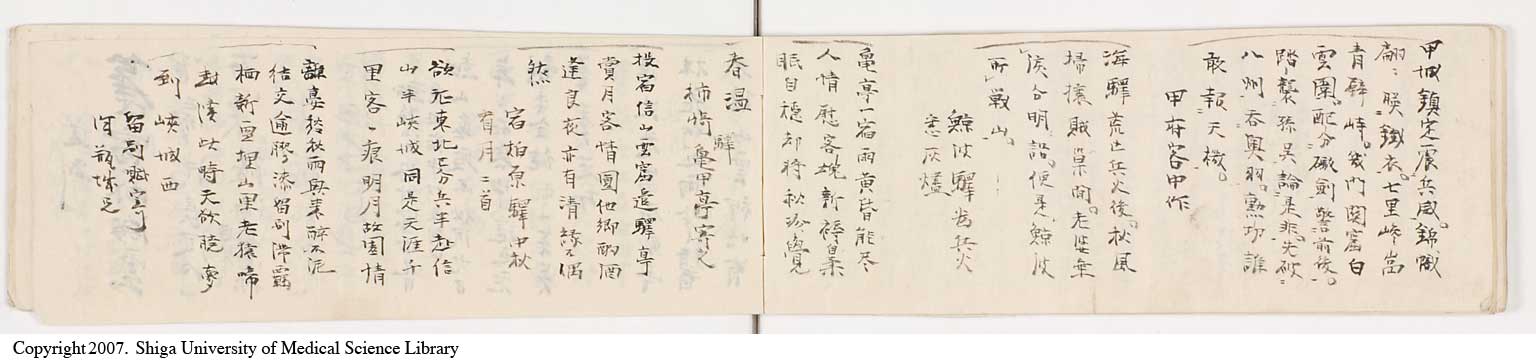 甲城鎮定震兵威。錦幟
翩々映鐵衣。七里峰嵩
青壁峙。幾門関窟白
雲圍。配分礮劍警前後。
踏襲孫呉論是非。先破
八州呑奥羽。勲功誰
敢報天機。
甲府客中作
海驛荒亡兵火後。秋風
掃攘賊巣開。老婆無
涙合明説。便是鯨波
所戦山。
鯨波驛為兵火
悉灰燼
亀亭一宿雨黄昏能尽
人情慰客魂新褥累
眠自穏却将秋冷覺
春温
柿崎驛亀甲亭寓之
投宿信山雲窩邉驛亭
賞月客情圓他郷酌酒
逢良夜亦有清縁不偶
然
宿柏原驛中秋
看月二首
欲死東北已分兵半赴信
山半峡城同是天涯千
里客一痕明月故園情
離臺終秋雨興表酔不泥
結交逾膠漆留別滞覊
栖新雪埋山東老猿啼
封渓此時天欲暁夢
到峡城西
留別賦寄
河瓶城兄
Copyright 2007. Shiga University of Medical Science Library